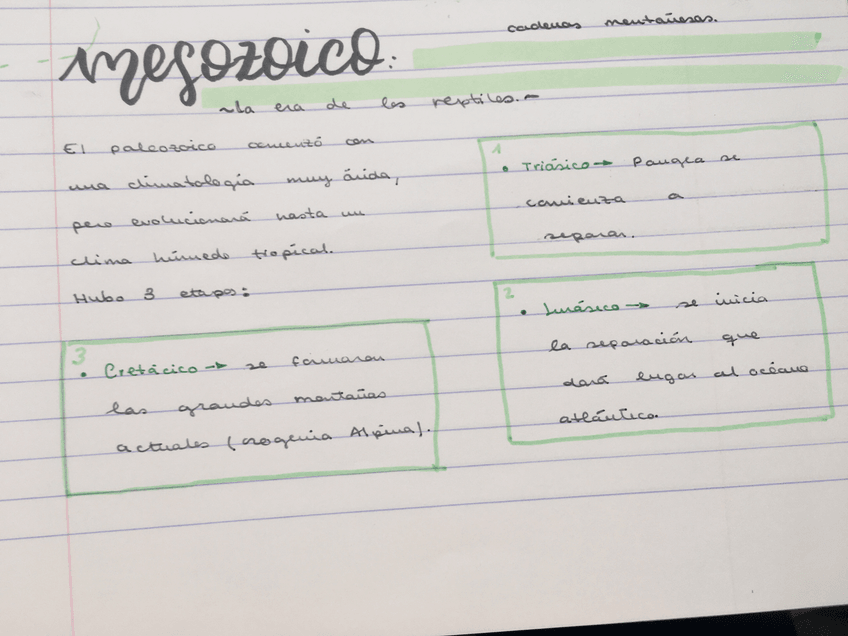 cadenas montañosas.
mesozoico:
~La era de los reptiles.~
El paleozoico comenzó con
una climatología muy árida,
pero evolucionará hasta un
clima húmedo tropical.
Hubo 3 etapas:
1
• Triásico → Pangea se
comienza a
separar.
2
• Jurásico → se inicia
la separación que
dará lugar al océano
atlántico.
3
• Cretácico → se formaron
las grandes montañas
actuales (orogenia Alpina).